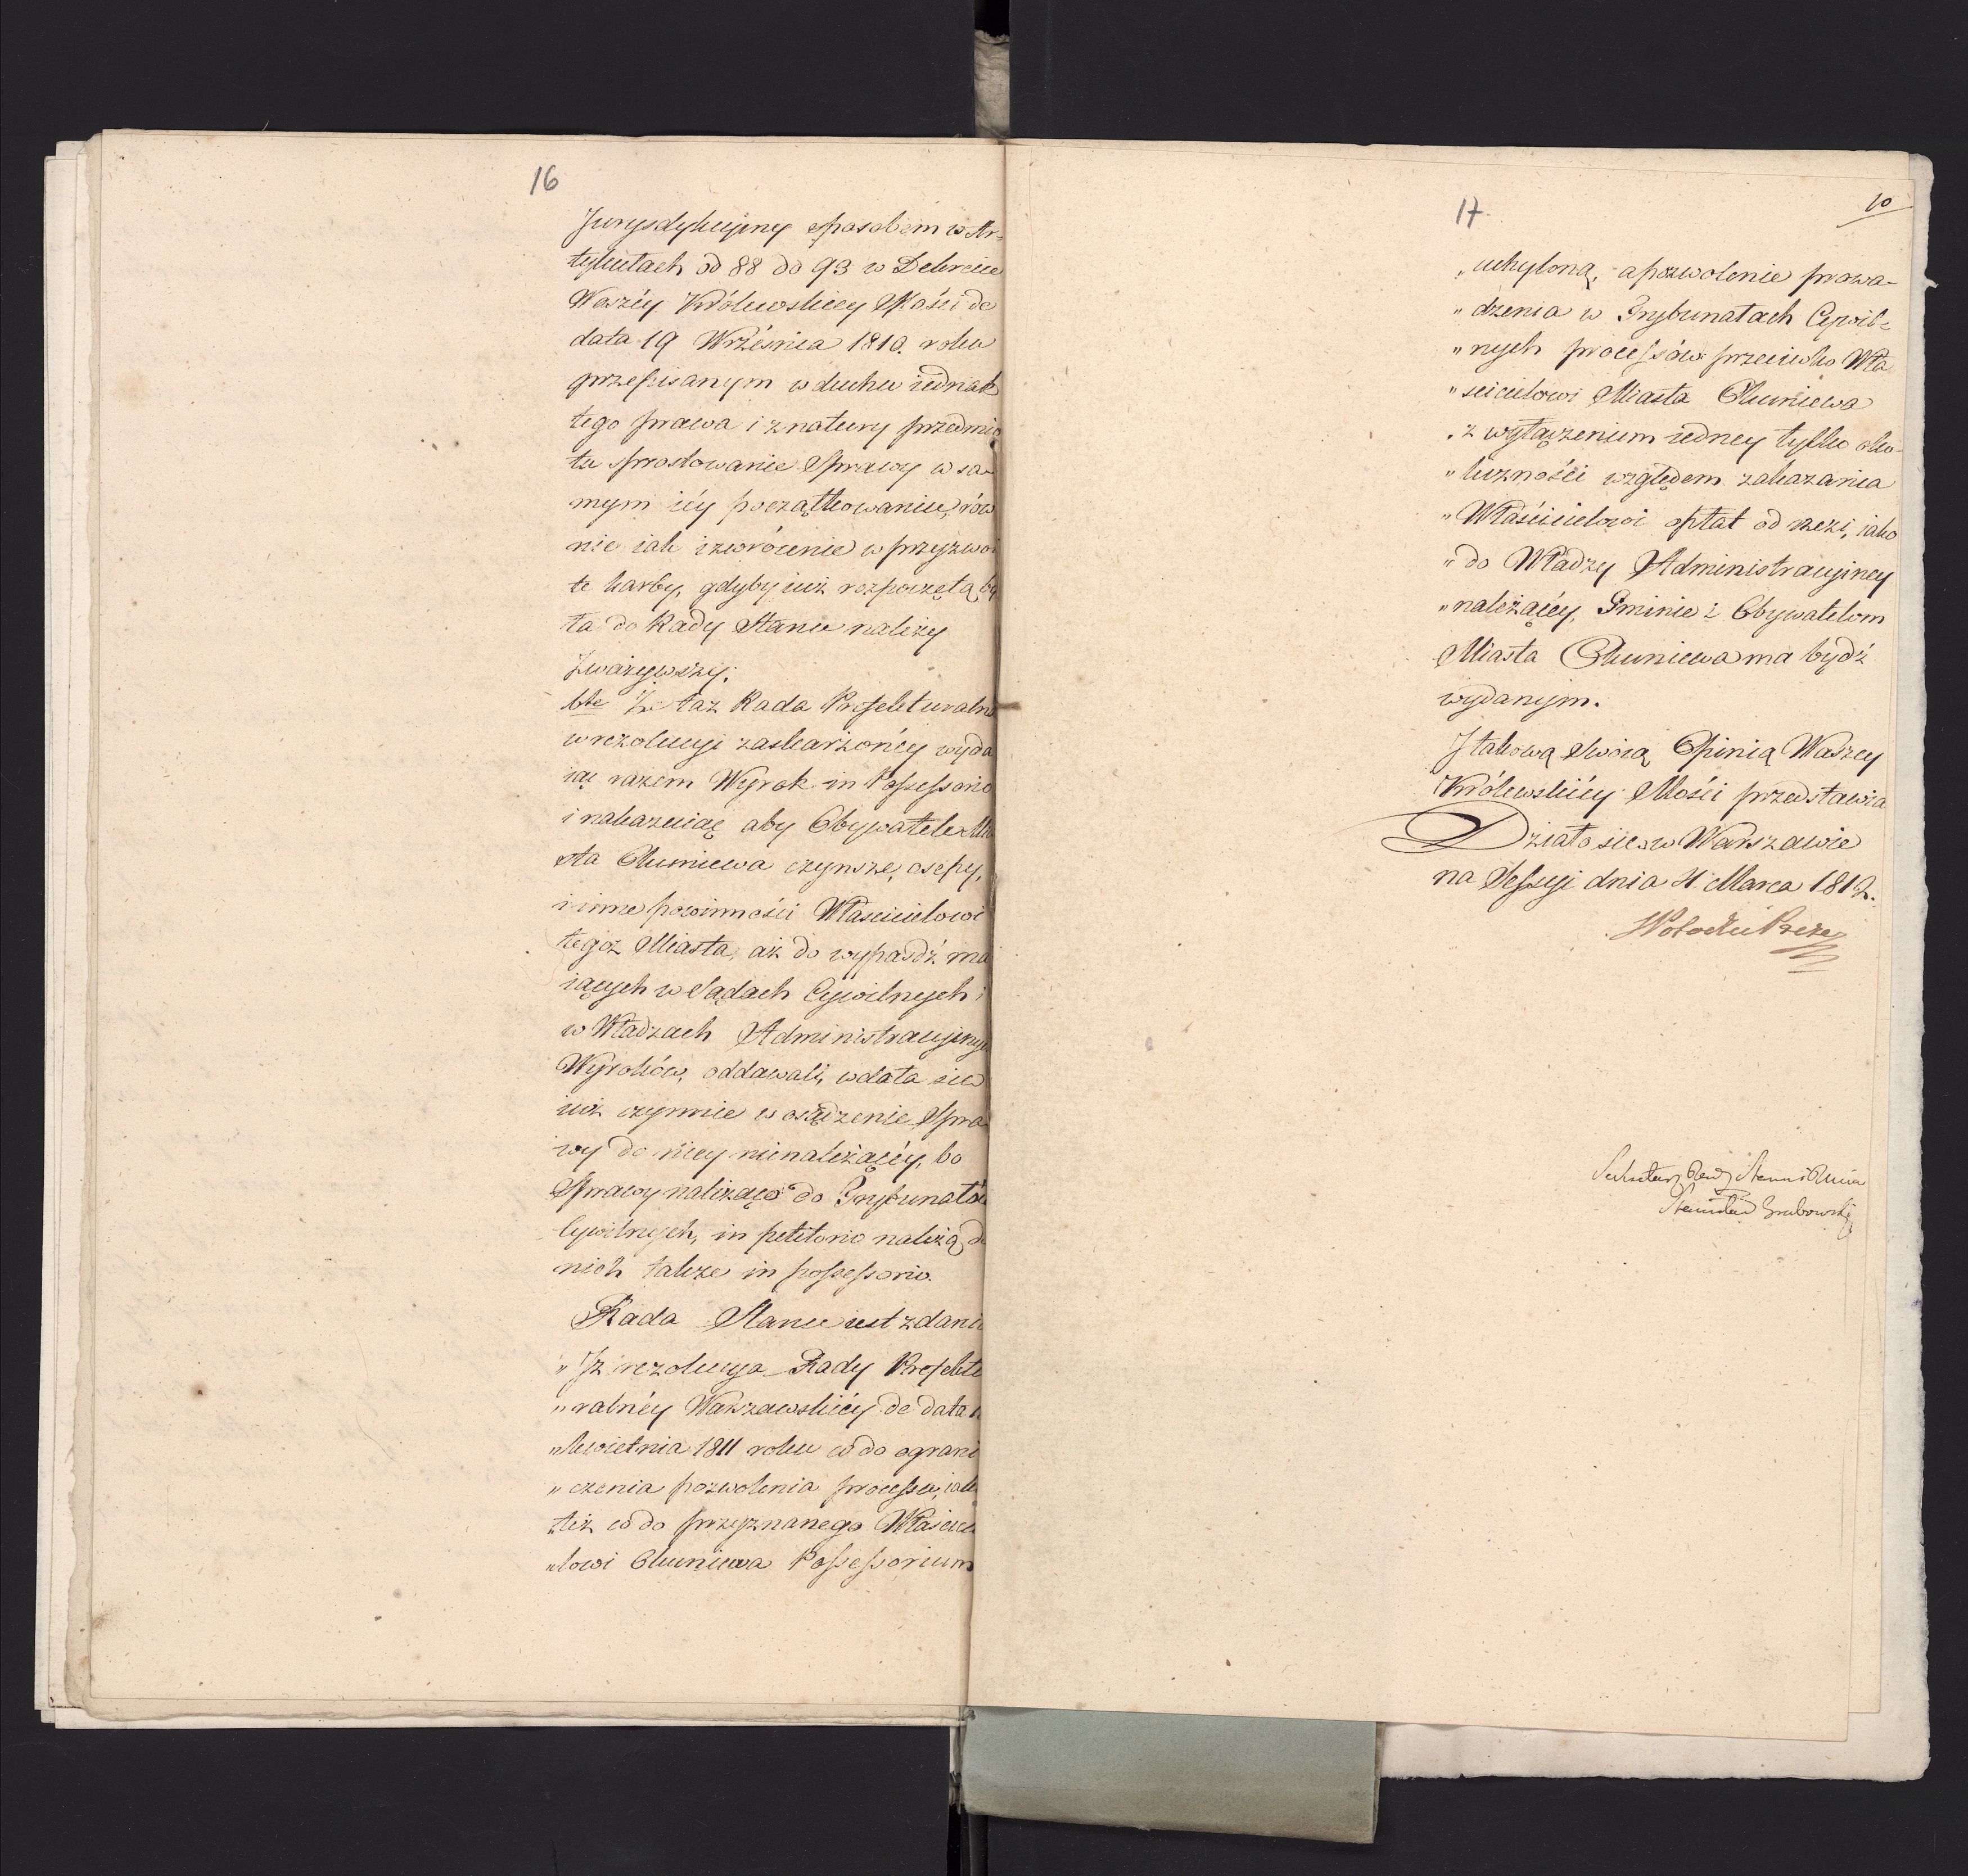 16
Jurysdykcyiny sposobem w Ar-
tykułach od 88 do 93 w Dekrecie
Waszéy Królewskiey Mości de
data 19 Września 1810. roku
przepisanym w duchu iednak
tego prawa i z natury przedmio
tu sprostowanie Sprawy w sa-
mym iéy początkowaniu, rów
nie iak i zwrócenie w przyzwoi
te karby, gdyby iuż rozpoczętą by
ła do Rady Stanu należy
Zważywszy:
6te Że taż Rada Prefekturalna
w rezolucyi zaskarżonéy wyda
iąc razem Wyrok in Possessorio
i nakazuiąc aby Obywatele Mia
sta Okuniewa czynsze, osepy,
i inne powinności Właścicielowi
tegoż Miasta, aż do wypaśdź ma
iących w Sądach Cywilnych i
w Władzach Administracyjnych
Wyroków, oddawali, wdała się
iuż czynnie w osądzenie Spra
wy do niey nienależącéy, bo
Sprawy należące do Trybunałów
Cywilnych, in petitorio należą do
nich także in possessorio.
Rada Stanu iest zdania
„Iż rezolucya Rady Prefektu
„ralnéy Warszawskiéy de data
„Kwietnia 1811 roku co do ograni
„czenia pozwolenia processu, iak
„też co do przyznanego Właścicie
„lowi Okuniewa Possessorium
17.
10
„uchyloną, a pozwolenie prowa-
„dzenia w Trybunałach Cywil-
„nych processów przeciwko Wła
„ścicielowi Miasta Okuniewa
„z wyłączeniem iedney tylko oko-
„liczności względem zakazania
„Właścicielowi opłat od rzezi, iako
„do Władzy Administracyiney
„należącéy, Gminie i Obywatelom
Miasta Okuniewa ma bydź
wydanym.
I takową swoią Opinią Waszey
Królewskiéy Mości przedstawia
Działo się w Warszawie
na Sessyi dnia 4. Marca 1812.
Potocki Prezes
Sekretarz Rady Stanu i Ministrów
Stanisław Grabowski